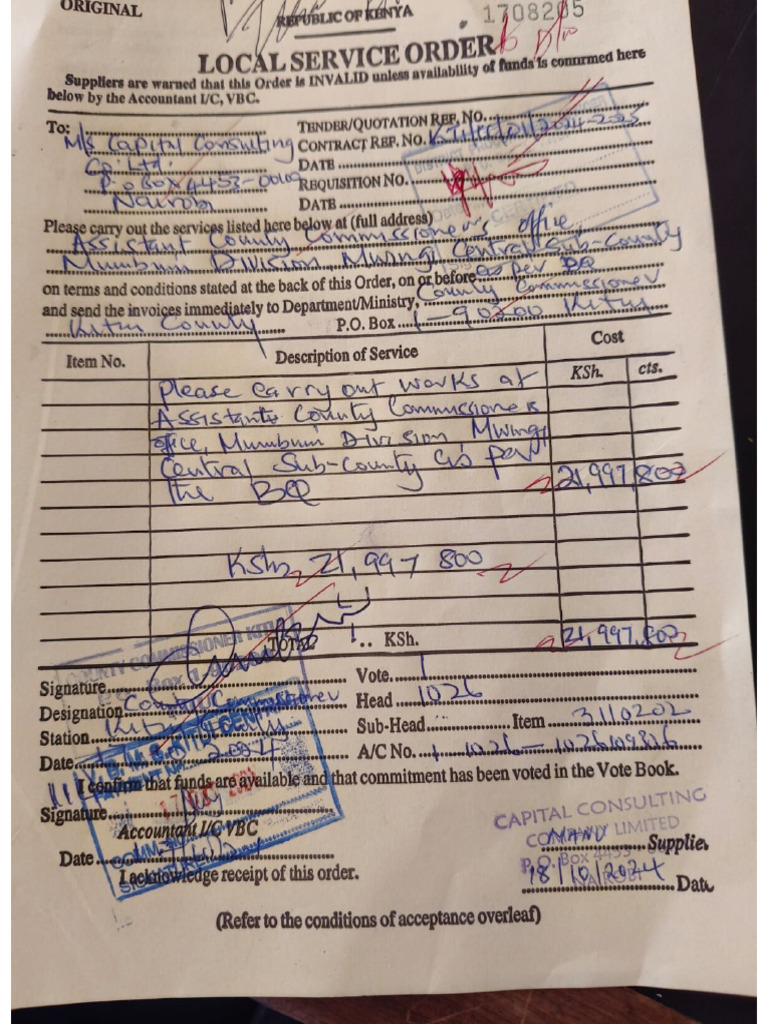 ORIGINAL
REPUBLIC OF KENYA
1708205
LOCAL SERVICE ORDER
Suppliers are warned that this Order is INVALID unless availability of funds is confirmed here
below by the Accountant I/C, VBC.
To: M/s Capital Consulting
Co. Ltd.
P.o Box 4453-00100
Nairobi
TENDER/QUOTATION REF. NO.
CONTRACT REP. NO. 2024-2025
DATE
REQUISITION No.
DATE
Please carry out the services listed here below at (full address)
Assistant County Commissioner's office,
Mumbuni Division, Mwingi Central Sub-County
on terms and conditions stated at the back of this Order, on or before as per BQ
and send the invoices immediately to Department/Ministry, County Commissioner
Kitui County P.O. Box 1-90200 Kitui
Item No. Description of Service Cost
KSh. cts.
Please carry out works at
Assistant County Commissioners
office, Mumbuni Division, Mwingi
Central Sub-County as per
the BQ 21,997,800
Ksh 21,997 800
TOTAL KSh. 21,997,800
COUNTY COMMISSIONER KITUI
Signature Vote 1
Designation County Commissioner Head 1026
Station Kitui County Sub-Head Item 3110202
Date 2024 A/C No. 1 1026-1026109816
I confirm that funds are available and that commitment has been voted in the Vote Book.
Signature
Accountant I/C VBC
Date
I acknowledge receipt of this order.
CAPITAL CONSULTING
COMPANY LIMITED
P.O. Box 4453
NAIROBI
Supplier
18/10/2024
Date
(Refer to the conditions of acceptance overleaf)